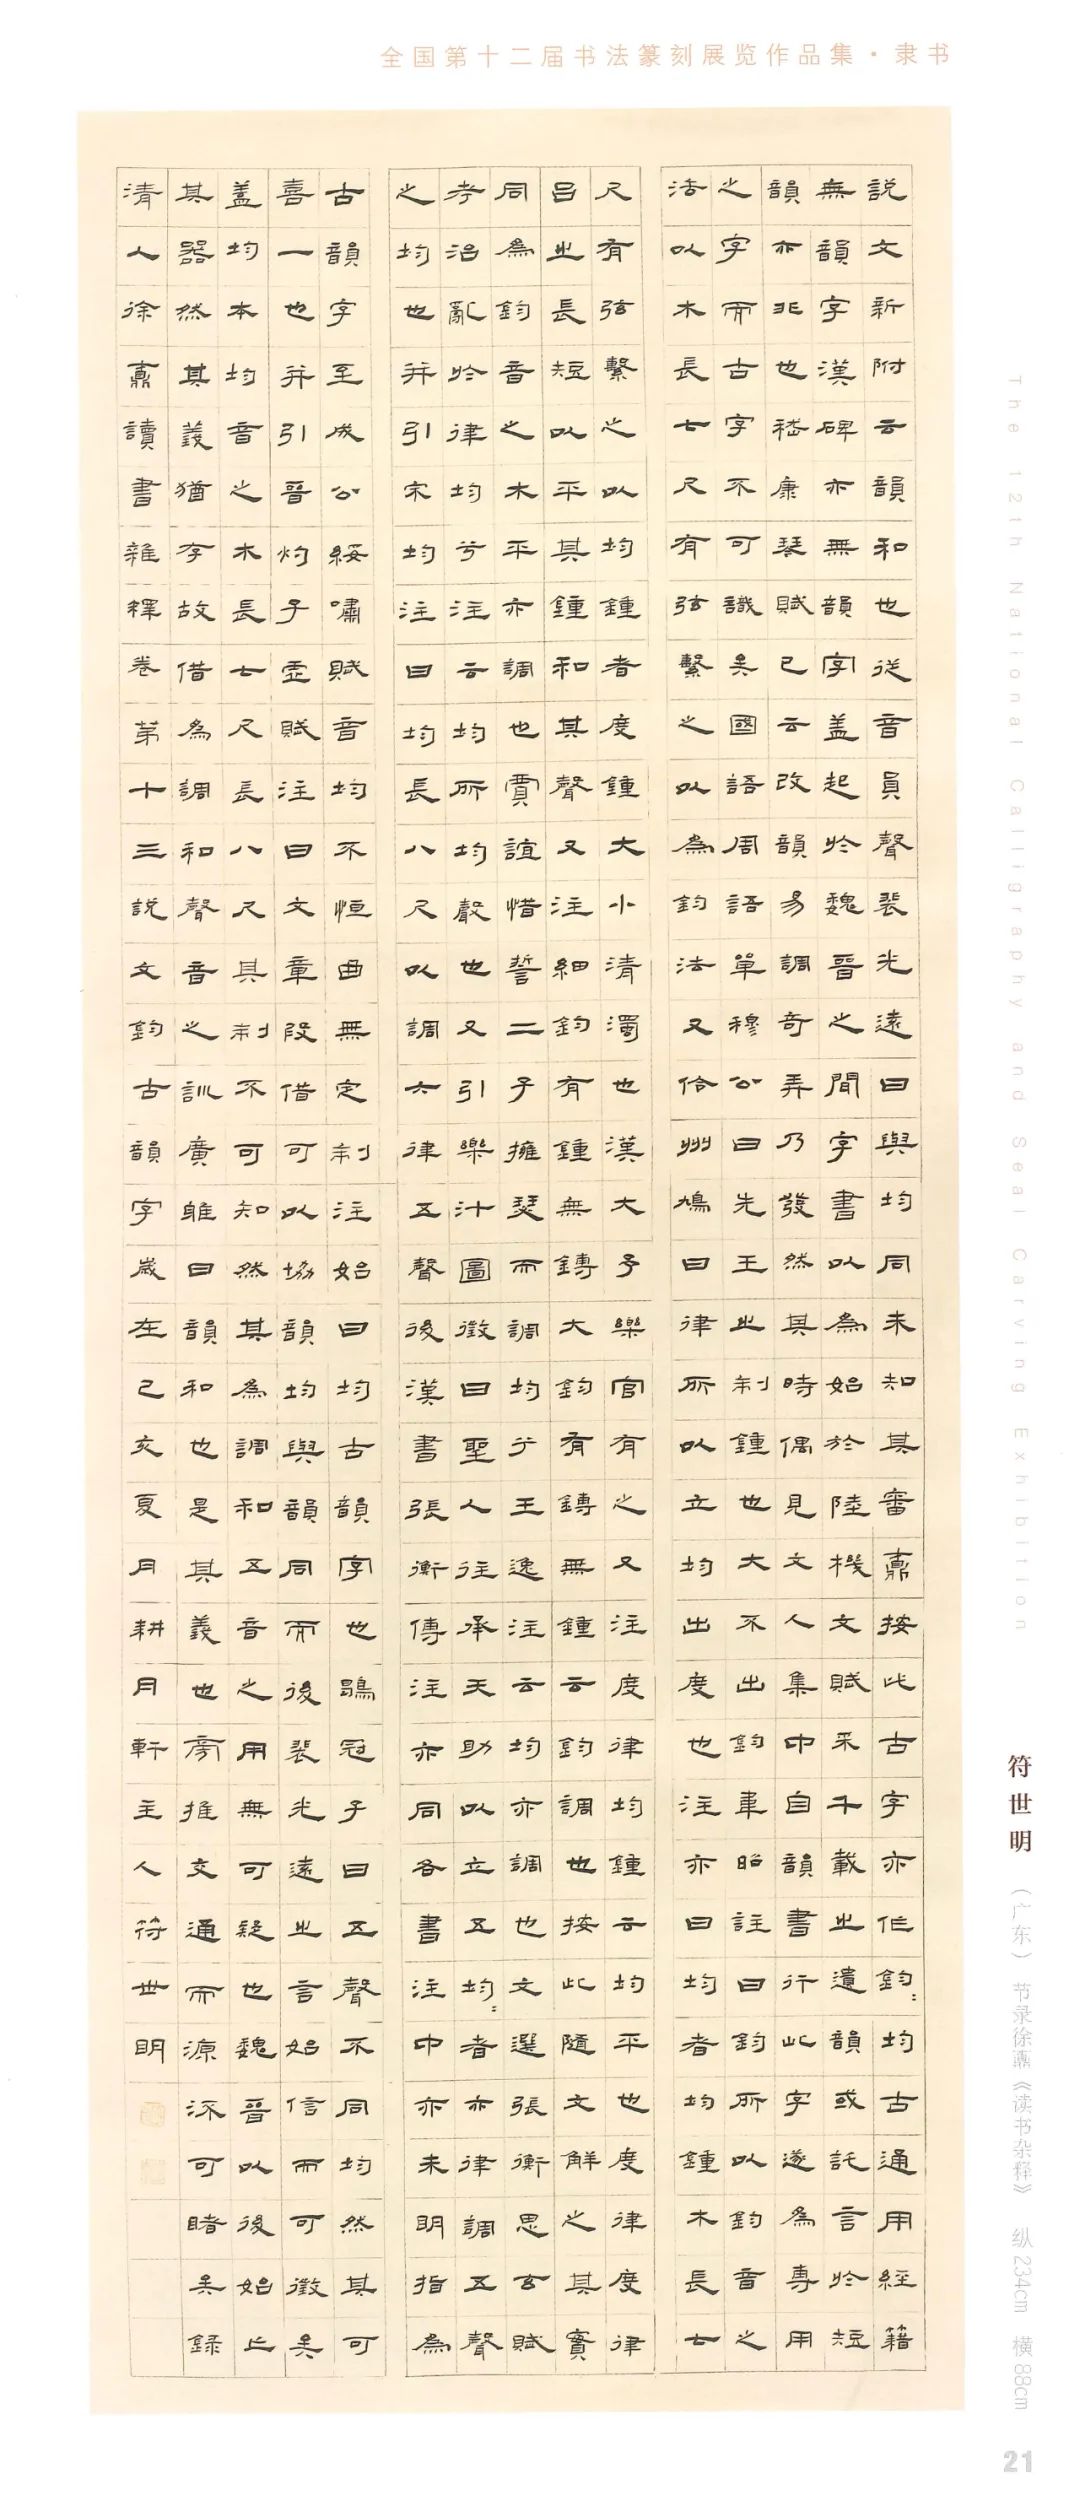 全国第十二届书法篆刻展览作品集·隶书
説文新附云韻和也從音員聲裴光遠曰與均同未知其審鼒按此古字亦作鈞=均古通用經籍
無韻字漢碑亦無韻字蓋起於魏晉之間字書以為始於陸機文賦采千載之遺韻或託言於短
韻亦非也嵇康琴賦已云改韻易調奇弄乃發然其時偶見文人集中自韻書行此字遂為專用
之字而古字不可識矣國語周語單穆公曰先王之制鍾也大不出鈞韋昭註曰鈞所以鈞音之
法以木長七尺有弦繫之以為鈞法又伶州鳩曰律所以立均出度也注亦曰均者均鍾木長七
尺有弦繫之以均鍾者度鍾大小清濁也漢大予樂官有之又注度律均鍾云均平也度律度律
呂之長短以平其鍾和其聲又注細鈞有鍾無鎛大鈞有鎛無鍾云鈞調也按此隨文解之其實
同為鈞音之木平亦調也賈誼惜誓二子擁瑟而調均兮王逸注云均亦調也文選張衡思玄賦
考治亂於律均兮注云均所均聲也又引樂汁圖徵曰聖人往承天助以立五均=者亦律調五聲
之均也并引宋均注曰均長八尺以調六律五聲後漢書張衡傳注亦同各書注中亦未明指為
古韻字至成公綏嘯賦音均不恒曲無定制注始曰均古韻字也鶡冠子曰五聲不同均然其可
喜一也并引晉灼子虛賦注曰文章段借可以協韻均與韻同而後裴光遠之言始信而可徵矣
蓋均本均音之木長七尺長八尺其制不可知然其為調和五音之用無可疑也魏晉以後始
其器然其義猶存故借為調和聲音之訓廣雅曰韻和也是其義也旁推交通而源流可睹矣録
清人徐鼒讀書雜釋卷第十三説文鈞古韻字歲在己亥夏月耕月軒主人符世明
The 12th National Calligraphy and Seal Carving Exhibition
符世明（广东）节录徐鼒《读书杂释》 纵234cm 横88cm
21